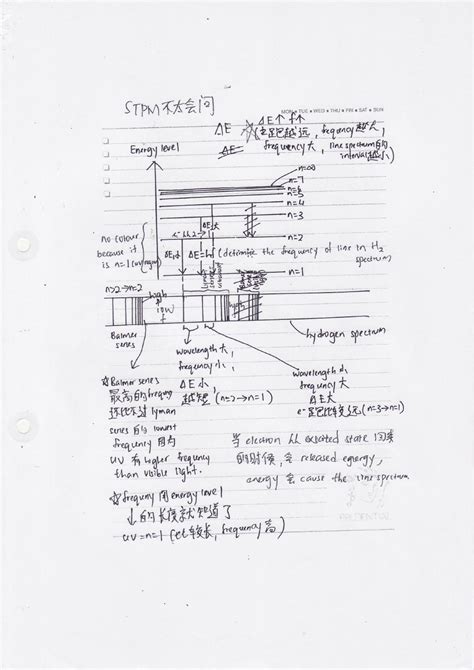 STPM不太会问
MON • TUE • WED • THU • FRI • SAT • SUN
ΔE↑ f↑
ΔE 走越远, frequency越大,
ΔE frequency大, line spectrum的
interval越小)
Energy level
n=∞
n=7
n=6
n=5
n=4
n=3
n=2
n=1
no colour
because it
is n=1 (uv region)
ΔE大
ΔE小
ΔE=hf (determine the frequency of line in H2
spectrum)
n>2→n=2
high
low
Balmer
series
hydrogen spectrum
wavelength大,
frequency小,
ΔE小,
越短 (n=2→n=1)
wavelength小
frequency大
ΔE大
(n=3→n=1)
☆Balmer series
最高的frequency
lyman
series 的 lowest
frequency 因为
UV 有 higher frequency
than visible light.
当 electron 从 excited state 回来
的时候, 会 released energy,
energy 会 cause the line spectrum
☆frequency 用 energy level
↓的长度就知道了
uv=n=1 (比较长, frequency高)